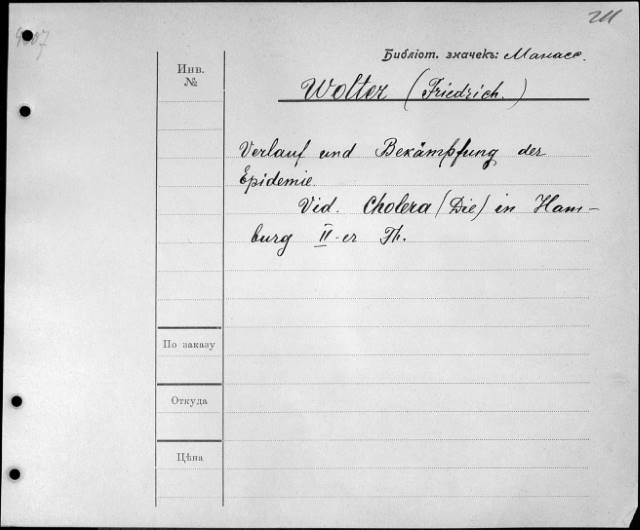 Библіот. значекъ: Манасс.
Инв.
№
Wolter (Friedrich.)
Verlauf und Bekämpfung der
Epidemie.
Vid. Cholera (Die) in Ham-
burg II-er Th.
По заказу
Откуда
Цѣна